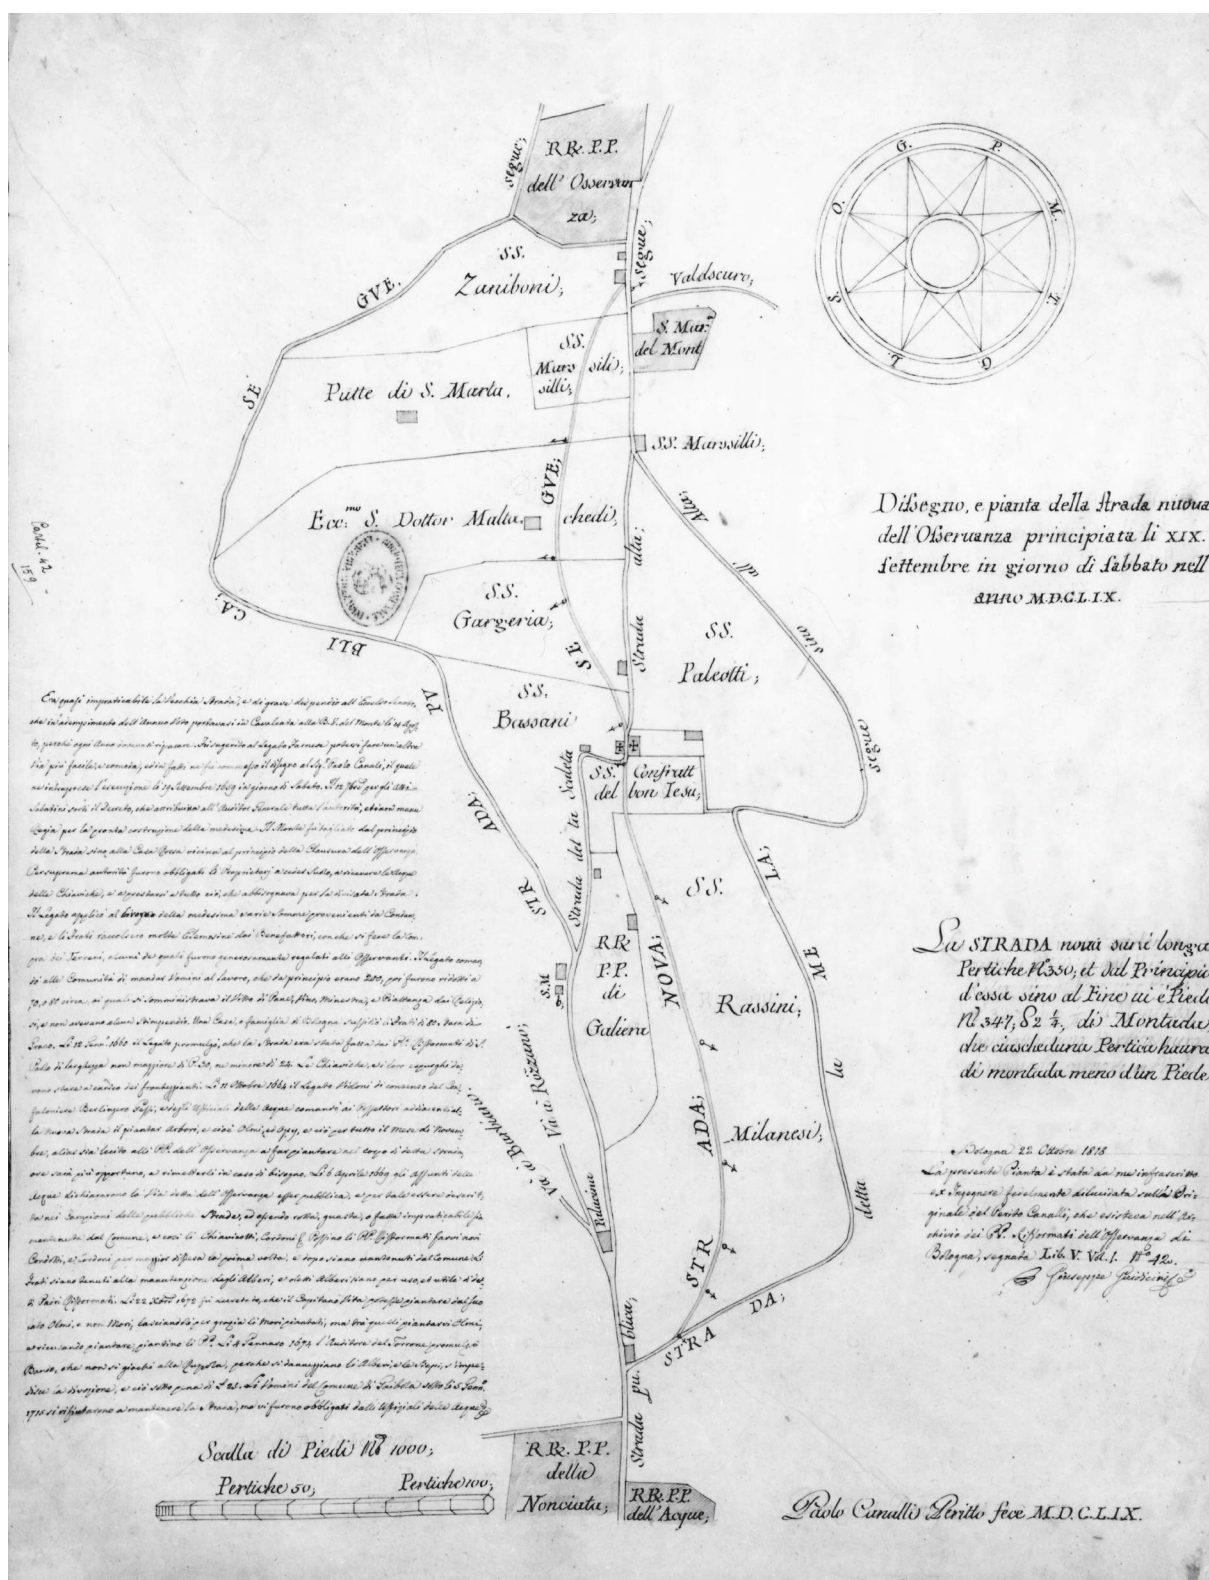 segue;
RR. P.P.
dell' Osservan
za;
SS.
Zaniboni;
segue;
Valdscuro;
GVE.
SE
SS.
Mars
silli;
sili;
S. Mar.a
del Mont
Putte di S. Marta.
SS. Marssilli;
GVE;
Ecc.mo S. Dottor Malta.
chedi,
alta;
Alta;
all'
sino
segue
CA;
BLI
PV
ADA;
STR
SS.
Gargeria;
SE
Strada
SS.
Paleotti;
SS.
Bassani
SS.
del
Confratt
bon Iesu;
Strada del la Scaleta
SS.
Rassini;
Milanesi;
LA;
ME
la
detta
DA;
STRA
RR
P.P.
di
Galiera
NOVA;
ADA;
STR
S.M
Via à Rozzano;
Via à Barbiano
Palacina
blica;
Strada pu.
RR. P.P.
della
Nonciata;
RR. P.P.
dell'Acque;
G.
P.
M.
T.
G.
L.
S.
O.
Cartel. 42
159
Dissegno, e pianta della strada nuova
dell'Osseruanza principiata li XIX.
settembre in giorno di sabbato nell'
anno M.D.C.L.IX.
La STRADA noua sarà longa
Pertiche N.o 350; et dal Principio
d'essa sino al Fine ui è Piedi
N.o 347; S 2 1/4, di Montada,
che ciascheduna Pertica haurà
di montada meno d'un Piede
Bologna 22 Ottobre 1818
La presente Pianta è stata da me infrascritto
ex Ingegnere fedelmente dilucidata sulla Ori-
ginale del Perito Canalli, che esisteva nell'Ar-
chivio dei PP. Riformati dell'Osservanza di
Bologna, segnata Lib. V. Vol. I. N.o 42.
Giuseppe Guidicini
Era quasi impraticabile la Vecchia Strada, e di grave dispendio all' Eccelso Senato,
che in adempimento dell'annuo Voto portavasi in Cavalcata alla B.V. del Monte li
to, perchè ogni Anno dovevasi riparare. Fu suggerito al Legato Farnese potersi fare un'altra
Via più facile, e comoda, ed in fatti ne fu commesso il disegno al Sig. Paolo Canali, il quale
ne intraprese l'esecuzione li 19 Settembre 1659 in giorno di Sabato. Il
sorti il Decreto, che attribuiva all'Auditor Generale tutta l'autorità,
Regia per la pronta costruzione della medesima. Il Monte fu tagliato dal principio
della Strada sino alla Casa Rossa vicina al principio della Clausura dell'Osservanza.
Per suprema autorità furono obbligati li Proprietarj a ceder Suolo, a ricevere le Acque
delle Chiaviche, e a prestarsi a tutto ciò, che abbisognava per la divisata Strada.
Il Legato applicò al lavoro della medesima varie Somme provenienti da Condan-
ne, e li Frati raccolsero molte Elemosine dai Benefattori, con che si fece la Com-
pra dei Terreni, alcuni de quali furono generosamente regalati alli Osservanti. Il Legato coman-
dò alle Comunità di mandar Uomini al Lavoro, che da principio erano 200, poi furono ridotti a
70, o 80 circa, ai quali si somministrava il Vitto di Pane, Vino, Minestra, e Piattanza dai
e non avevano alcun Stimpendio. Una Casa, o famiglia di Bologna
Li 12 1660 il Legato promulgò, che la Strada era stata fatta dai PP. Riformati di S.
Paolo di larghezza non maggiore di P. 30, ne minore di 24. Le Chiaviche, e loro espurghi do-
vono stare a carico dei frontegianti. Li 11 Ottobre 1664 il Legato Vidoni di consenso del Con-
faloniere Berlingero Gessi, e degli Uffiziali delle Acque comandò ai Possettori adiacenti al-
la nuova Strada il piantar Arbori, e cioè Olmi, ed Opj, e ciò per tutto il Mese di Novem-
bre, alias sia lecito alli PP. dell'Osservanza a far piantare nel corpo di detta strada,
ove sarà più opportuno, e rimetterli in caso di bisogno. Li 6 Aprile 1669 gli Assunti delle
Acque dichiararono la Via detta dell'Osservanza esser pubblica, e per tale essere descrit-
ta nei Campioni delle pubbliche Strade, ed essendo rotta, guasta, o fatta impraticabile sia
mantenuta dal Comune, e così li Chiaviotti, Cordoni
per maggior difesa la prima volta, e dopo siano mantenuti dal Comune. Li
Frati siano tenuti alla manutenzione degli Alberi, e detti Alberi siano per uso, ed utile di de-
ti Padri Riformati. Li 22 1672 fu decretato, che il Capitano Vita potesse piantare dal suo
lato Olmi, e non Mori, lasciandoli per grazia li Mori piantati, ma tra quelli piantarvi Olmi,
e ricusando piantare, piantino li PP. Li 4 Gennaro 1674 l'Auditore del Torrone promulgò
Bando, che non si giochi alla Ruzzola, perchè si danneggiano li Alberi, e le Siepi, s'impe-
disce la divozione, e ciò sotto pena di L 25. Li Uomini del Comune di Gaibola sotto li 5
1715 si rifiutarono a mantenere la Strada, ma vi furono obbligati dalli Uffiziali delle Acque
Scalla di Piedi N.o 1000;
Pertiche 50; Pertiche 100;
Paolo Canalli Peritto fece M.D.C.L.IX.